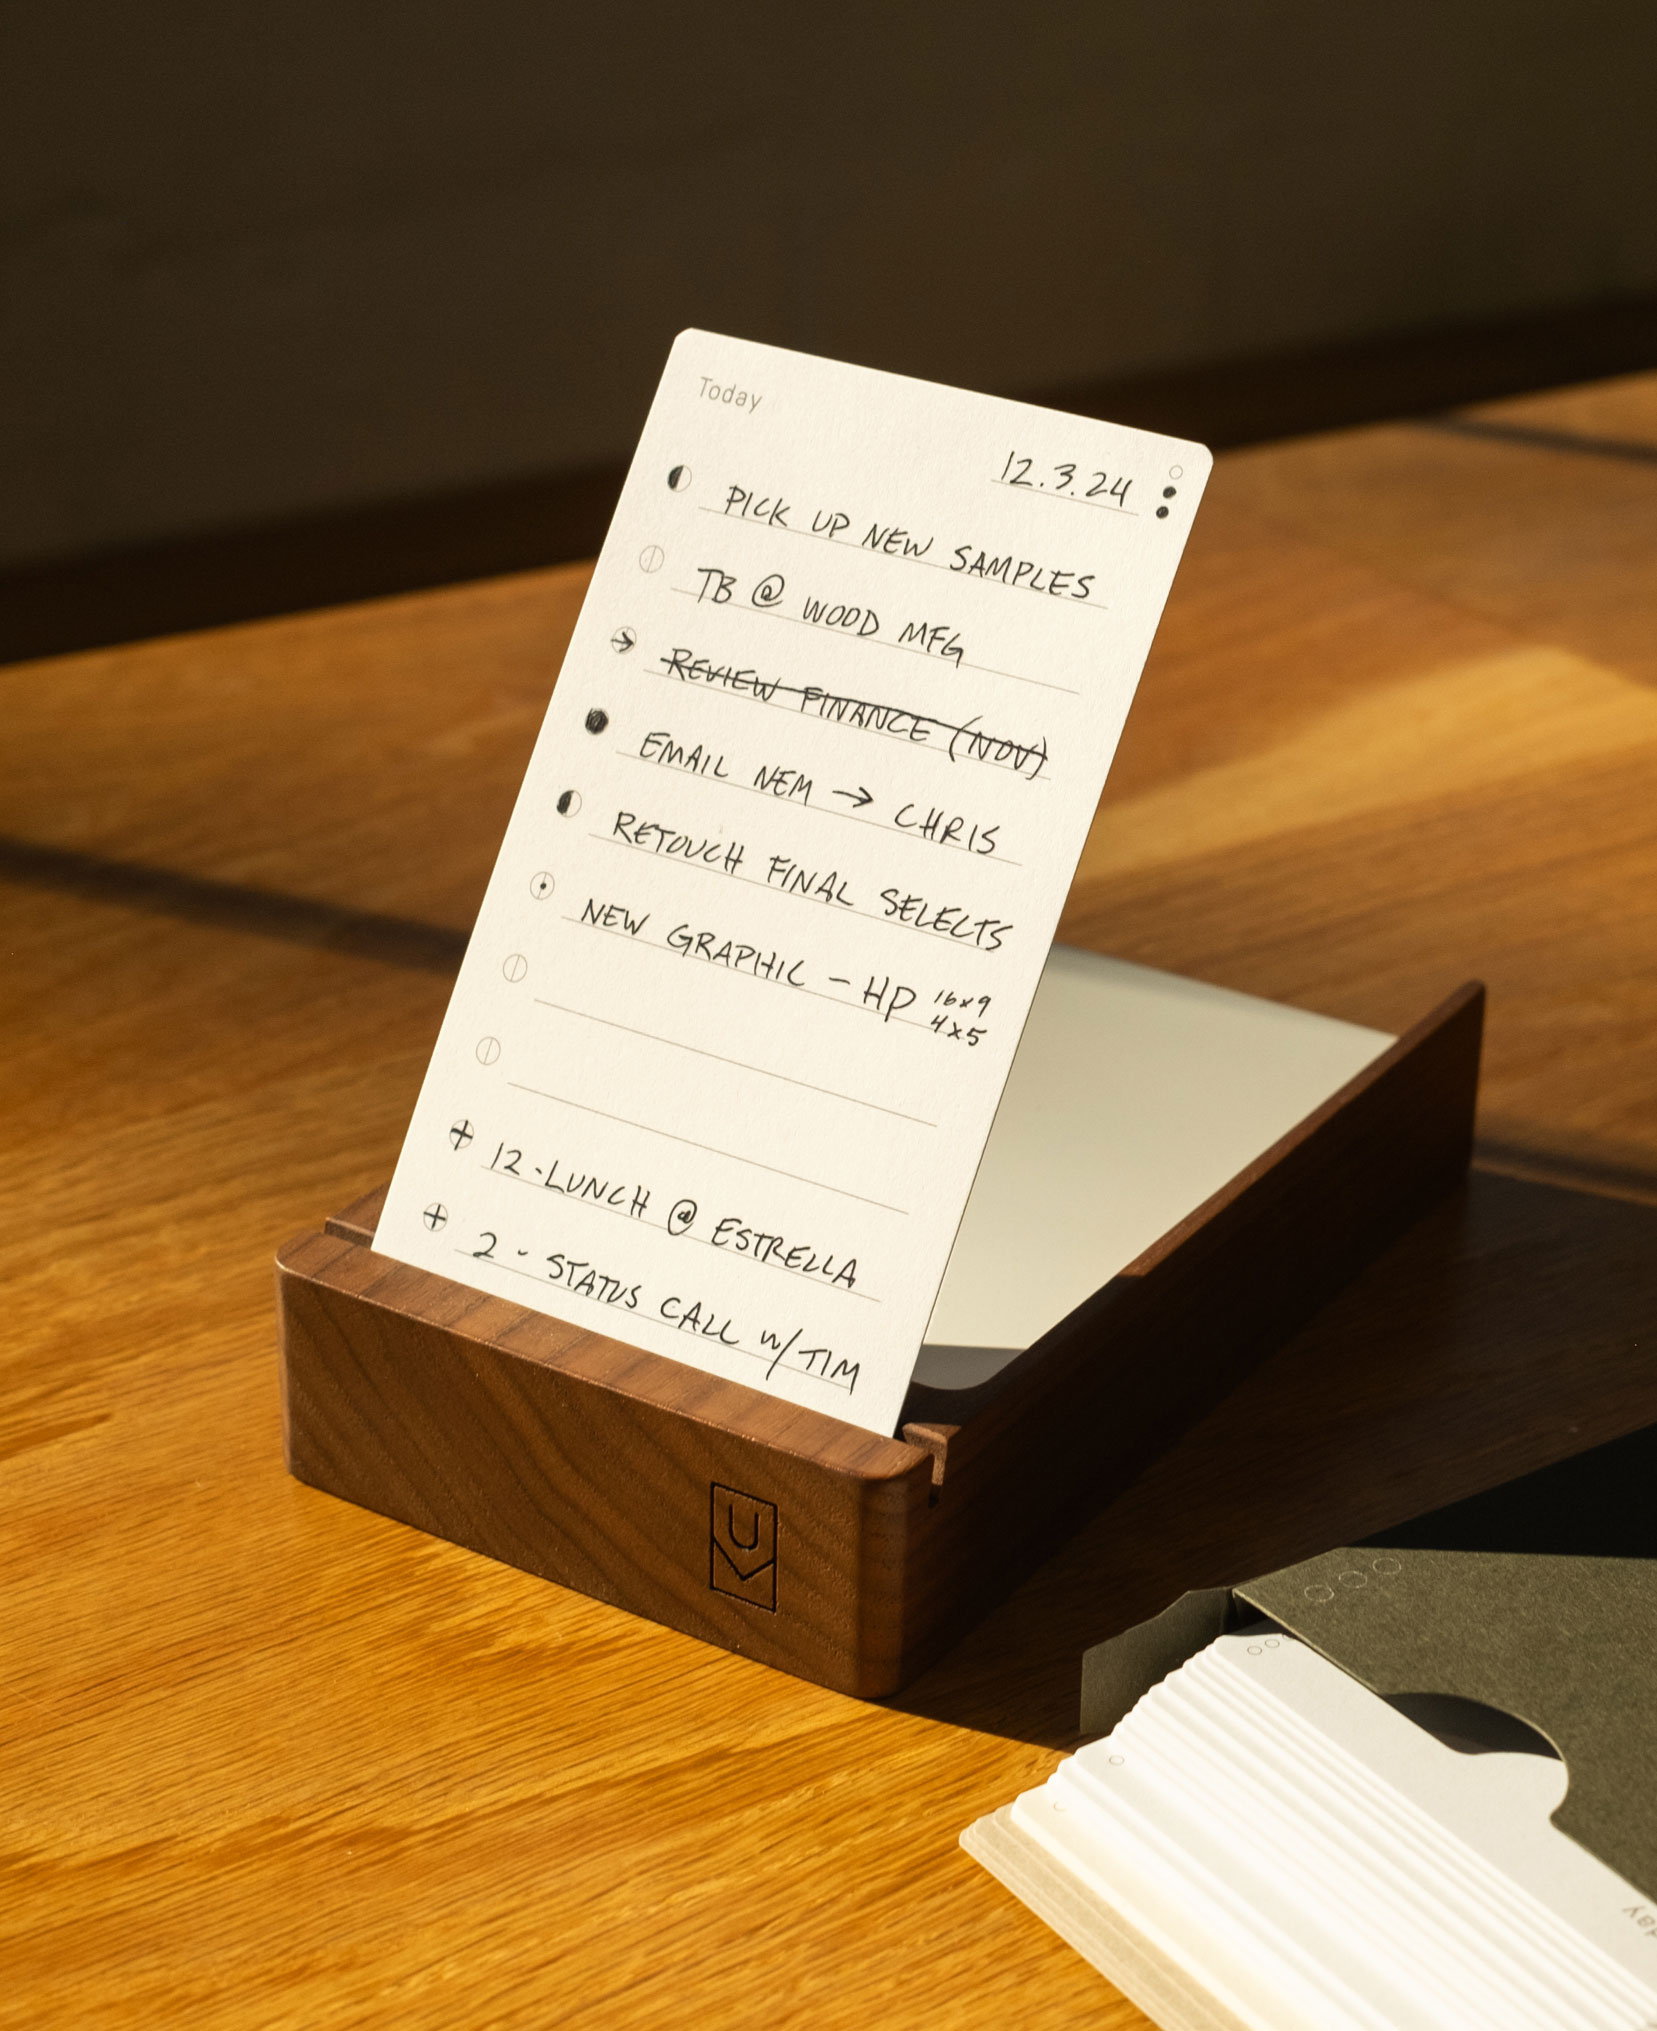 Today
12.3.24
PICK UP NEW SAMPLES
TB @ WOOD MFG
REVIEW FINANCE (NOV)
EMAIL NEM → CHRIS
RETOUCH FINAL SELECTS
NEW GRAPHIC - HP 16x9
4x5
12 - LUNCH @ ESTRELLA
2 - STATUS CALL w/ TIM
U